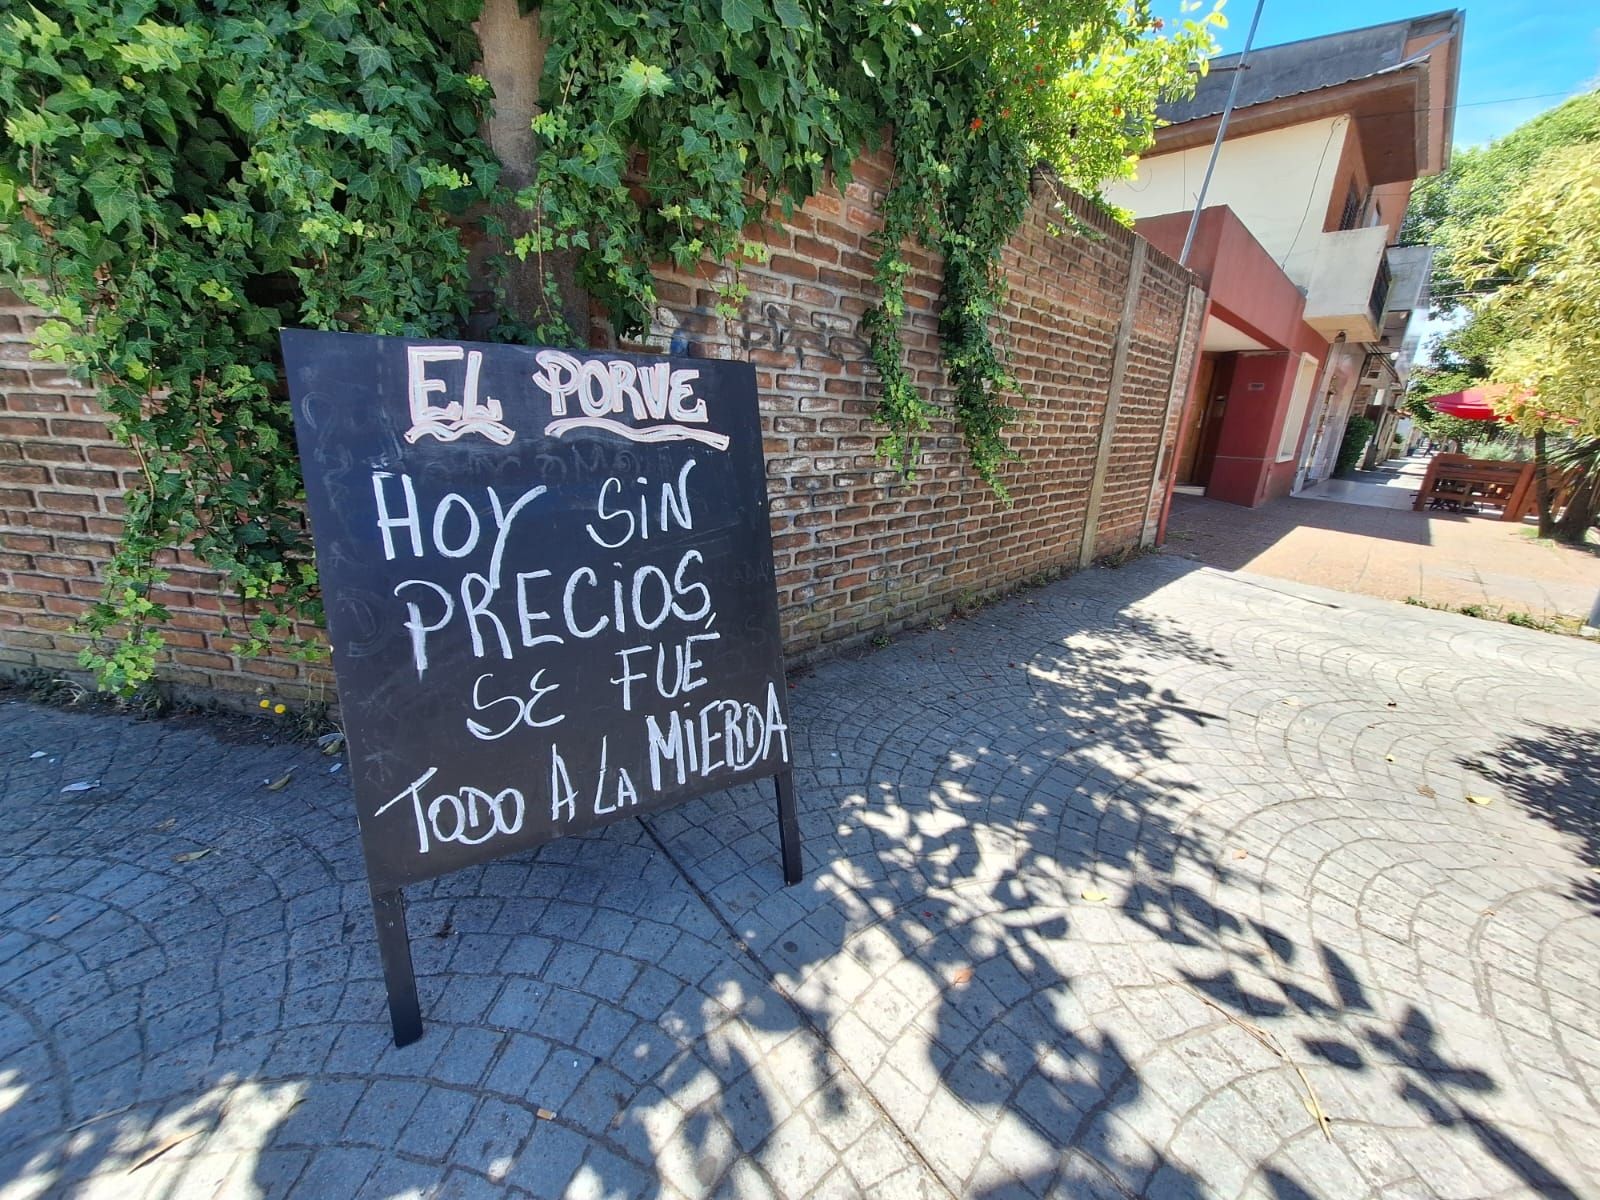 EL PORVE
HOY SiN
PRECiOS,
SE FUÉ
TODO A LA MiERDA